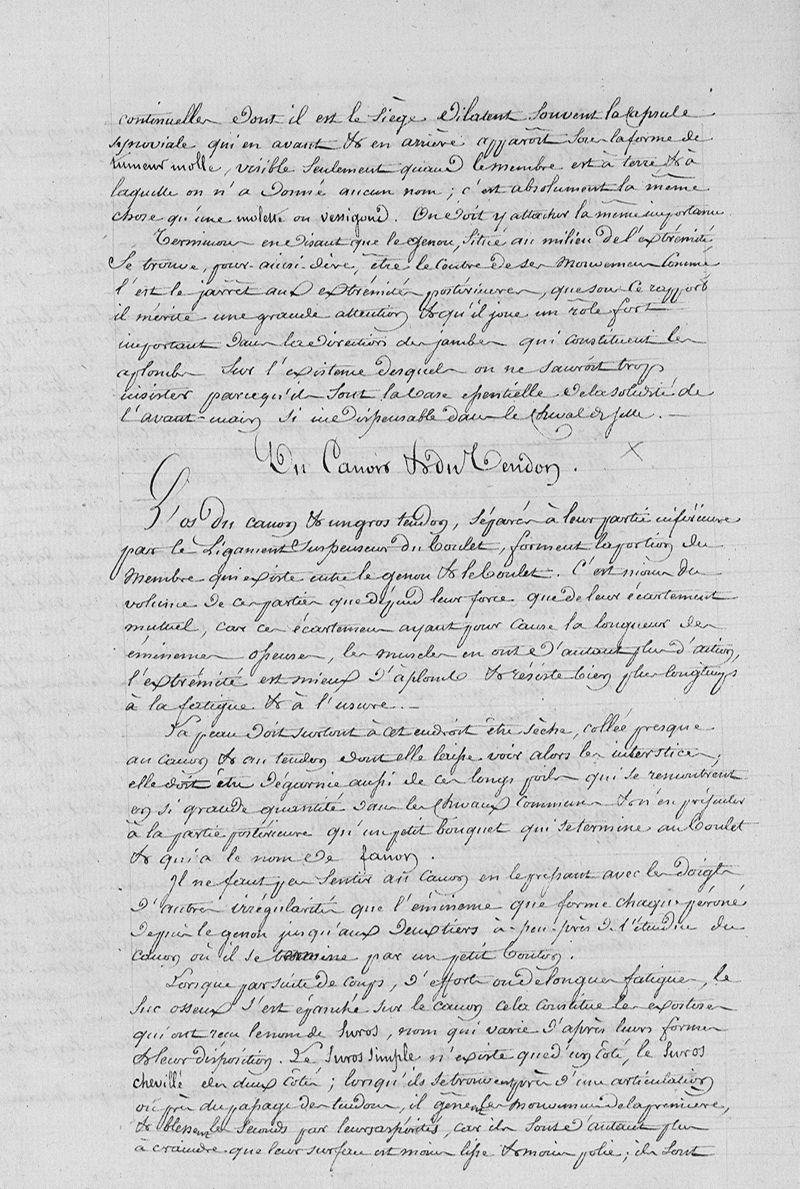 continuelles dont il est le siège dilatent souvent la capsule
synoviale qui en avant & en arrière apparoît sous la forme de
tumeur molle, visible seulement quand le membre est à terre & à
laquelle on n'a donné aucun nom ; c'est absolument la même
chose qu'une molette ou vessigond. On doit y attacher la même importance
Terminons en disant que le genou, situé au milieu de l'extrémité
se trouve, pour-ainsi-dire, être le centre de ses mouvemens comme
l'est le jarrêt aux extrémités postérieures, que sous ce rapport
il mérite une grande attention & qu'il joue un rôle fort
important dans la direction des jambes qui constituent les
aplombs sur l'existence desquels on ne sauroit trop
insister parcequ'ils sont la base essentielle de la solidité de
l'avant-main si indispensable dans le cheval de selle. —
Du Canon & du Tendon.
L'os du canon & un gros tendon, séparés à leur partie inférieure
par le Ligament suspenseur du boulet, forment la portion du
membre qui existe entre le genou & le boulet. C'est moins du
volume de ces parties que dépend leur force que de leur écartement
mutuel, car ces écartemens ayant pour cause la longueur des
éminences osseuses, les muscles en ont d'autant plus d'action,
l'extrémité est mieux d'àplomb & résiste bien plus longtemps
à la fatigue & à l'usure. —
La peau doit surtout à cet endroit être sèche, collée presque
au canon & au tendon dont elle laisse voir alors les interstices ;
elle doit être dégarnie aussi de ces longs poils qui se rencontrent
en si grande quantité dans les chevaux communs & n'en présenter
à la partie postérieure qu'un petit bouquet qui se termine au boulet
& qui a le nom de fanon.
Il ne faut pas sentir au canon en le pressant avec les doigts
d'autres irrégularités que l'éminence que forme chaque péroné
depuis le genou jusqu'aux deux tiers à-peu-près de l'étendue du
canon où il se termine par un petit bouton.
Lorsque par suite de coups, d'efforts ou de longues fatigues, le
suc osseux s'est épanché sur le canon cela constitue les exostoses
qui ont reçu le nom de suros, nom qui varie d'après leurs formes
& leur disposition. Le suros simple n'existe que d'un côté, le suros
chevillé des deux côtés ; lorsqu'ils se trouvent près d'une articulation
ou près du passage des tendons, il gênent les mouvemens de la première,
& blessent les seconds par leurs aspérités, car ils sont d'autant plus
à craindre que leur surface est moins lisse & moins polie ; ils sont